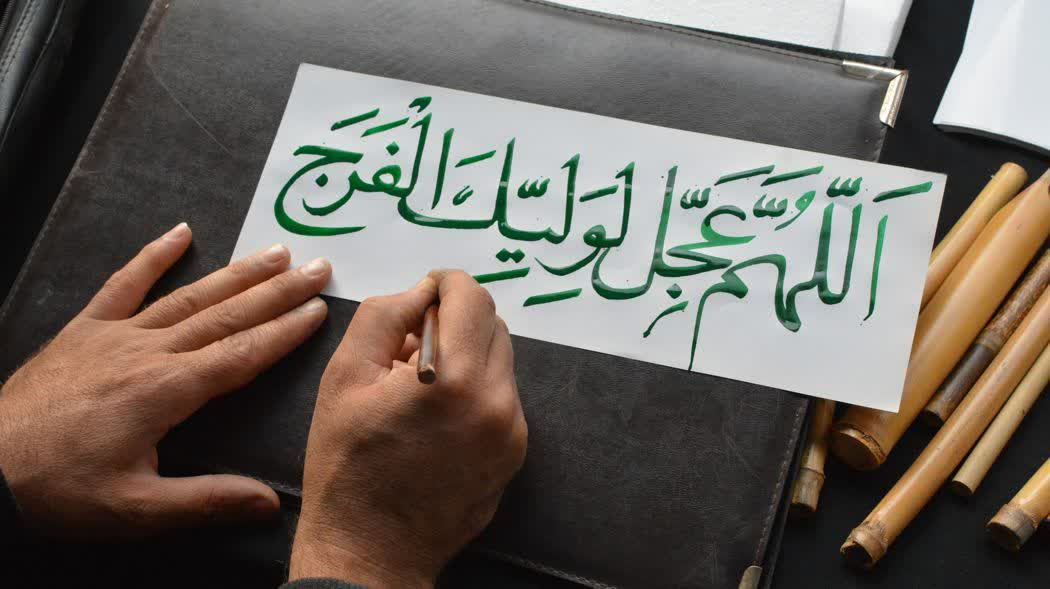 اَللّهُمَّ عَجِّل لِوَلِیِّكَ الْفَرَج